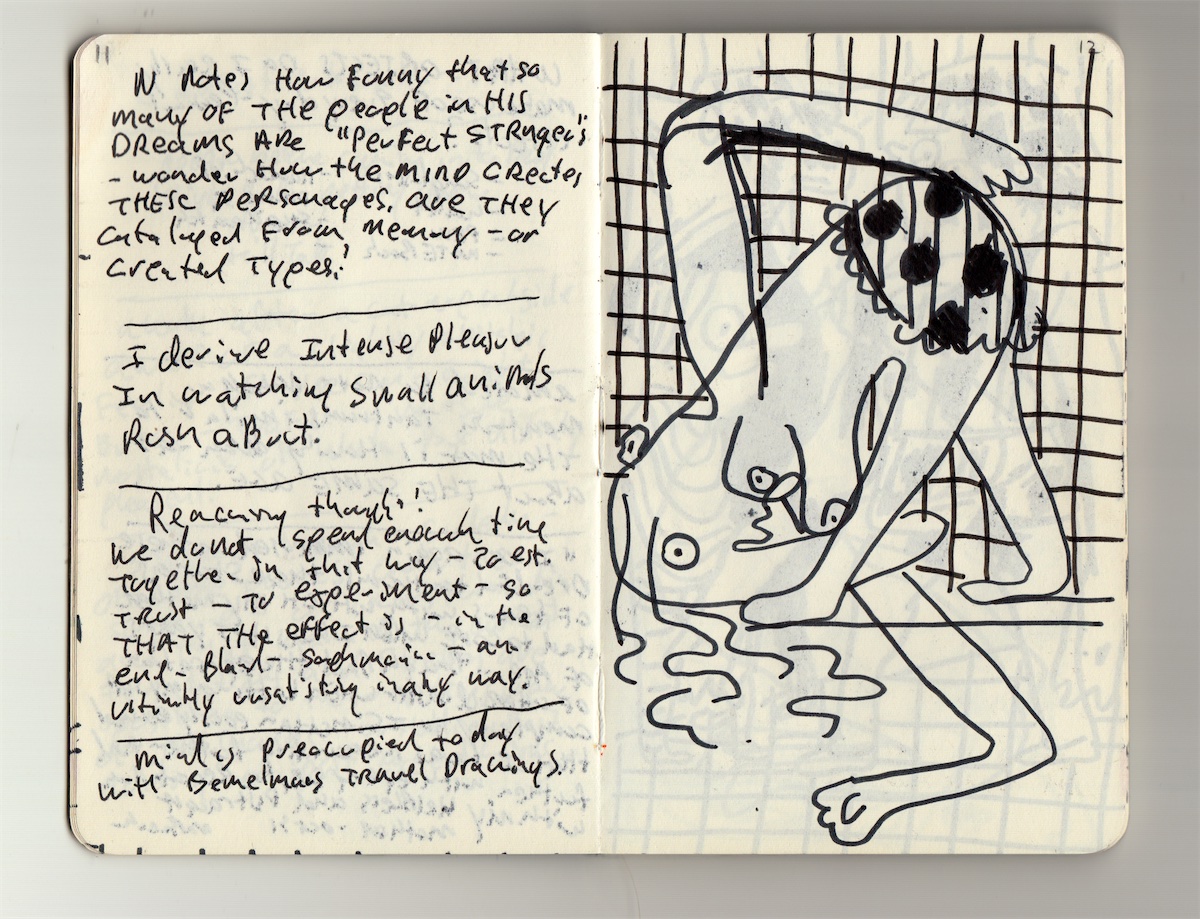 11
N Notes How Funny that so
many OF THE people in HIS
DREAMS ARE "PERFECT STRNGERS"
- wonder How the MIND Creates
THESE Personages. are THEY
Cataloged From Memory - or
Created Types?
I derive Intense Pleasure
In watching Small animals
Rush aBout.
Reaccuring thought:
we do not spend enough time
together in that way - to est.
Trust - To experiment - so
THAT THE effect is - in the
end - - an
ultimitly unsatisfing in any way.
Mind is Preoccupied today
with Bemelmans Travel Drawings.
12